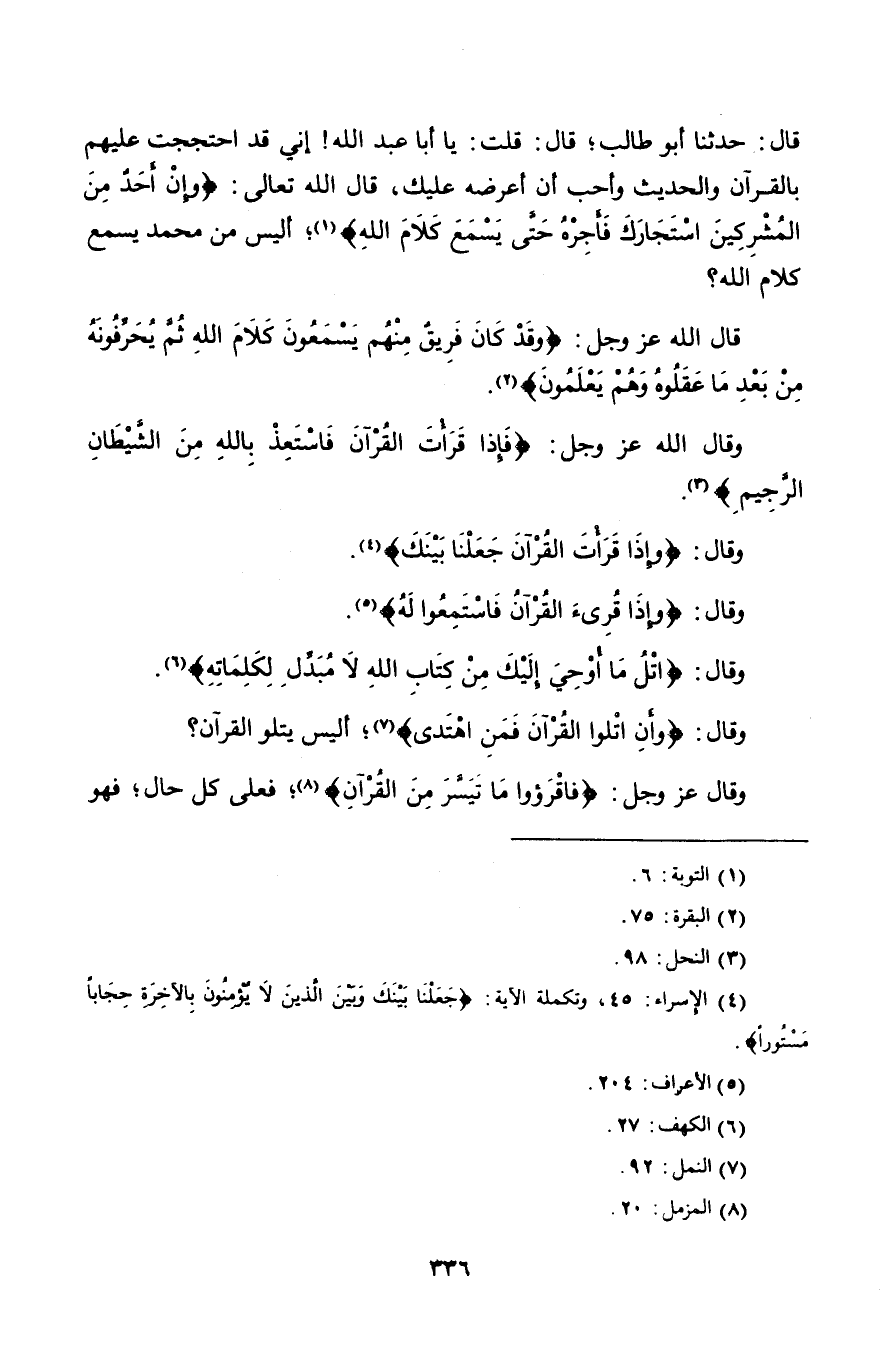 قال: حدثنا أبو طالب؛ قال: قلت: يا أبا عبد الله! إني قد احتججت عليهم
بالقرآن والحديث وأحب أن أعرضه عليك، قال الله تعالى: ﴿وإنْ أَحَدٌ مِنَ
المُشْرِكِينَ اسْتَجَارَكَ فَأَجِرْهُ حَتَّى يَسْمَعَ كَلَامَ اللهِ﴾(١)؛ أليس من محمد يسمع
كلام الله؟
قال الله عز وجل: ﴿وقَدْ كَانَ فَرِيقٌ مِنْهُم يَسْمَعُونَ كَلَامَ اللهِ ثُمَّ يُحَرِّفُونَهُ
مِنْ بَعْدِ مَا عَقَلُوهُ وَهُمْ يَعْلَمُونَ﴾(٢).
وقال الله عز وجل: ﴿فَإِذا قَرَأْتَ القُرْآنَ فَاسْتَعِذْ بِاللهِ مِنَ الشَّيْطَانِ
الرَّجِيمِ﴾(٣).
وقال: ﴿وإِذَا قَرَأْتَ القُرْآنَ جَعَلْنَا بَيْنَكَ﴾(٤).
وقال: ﴿وإِذَا قُرِىءَ القُرْآنُ فَاسْتَمِعُوا لَهُ﴾(٥).
وقال: ﴿اتْلُ مَا أُوْحِيَ إِلَيْكَ مِنْ كِتَابِ اللهِ لَا مُبَدِّلِ لِكَلِمَاتِهِ﴾(٦).
وقال: ﴿وأَنِ اتْلوا القُرْآنَ فَمَنِ اهْتَدى﴾(٧)؛ أليس يتلو القرآن؟
وقال عز وجل: ﴿فاقْرَؤوا مَا تَيَسَّرَ مِنَ القُرْآنِ﴾(٨)؛ فعلى كل حال؛ فهو
(١) التوبة: ٦.
(٢) البقرة: ٧٥.
(٣) النحل: ٩٨.
(٤) الإسراء: ٤٥، وتكملة الآية: ﴿جَعَلْنَا بَيْنَكَ وَبَيْنَ الَّذينَ لَا يُؤمِنُونَ بِالآخِرَةِ حِجَاباً
مَسْتُوراً﴾.
(٥) الأعراف: ٢٠٤.
(٦) الكهف: ٢٧.
(٧) النمل: ٩٢.
(٨) المزمل: ٢٠.
٣٣٦